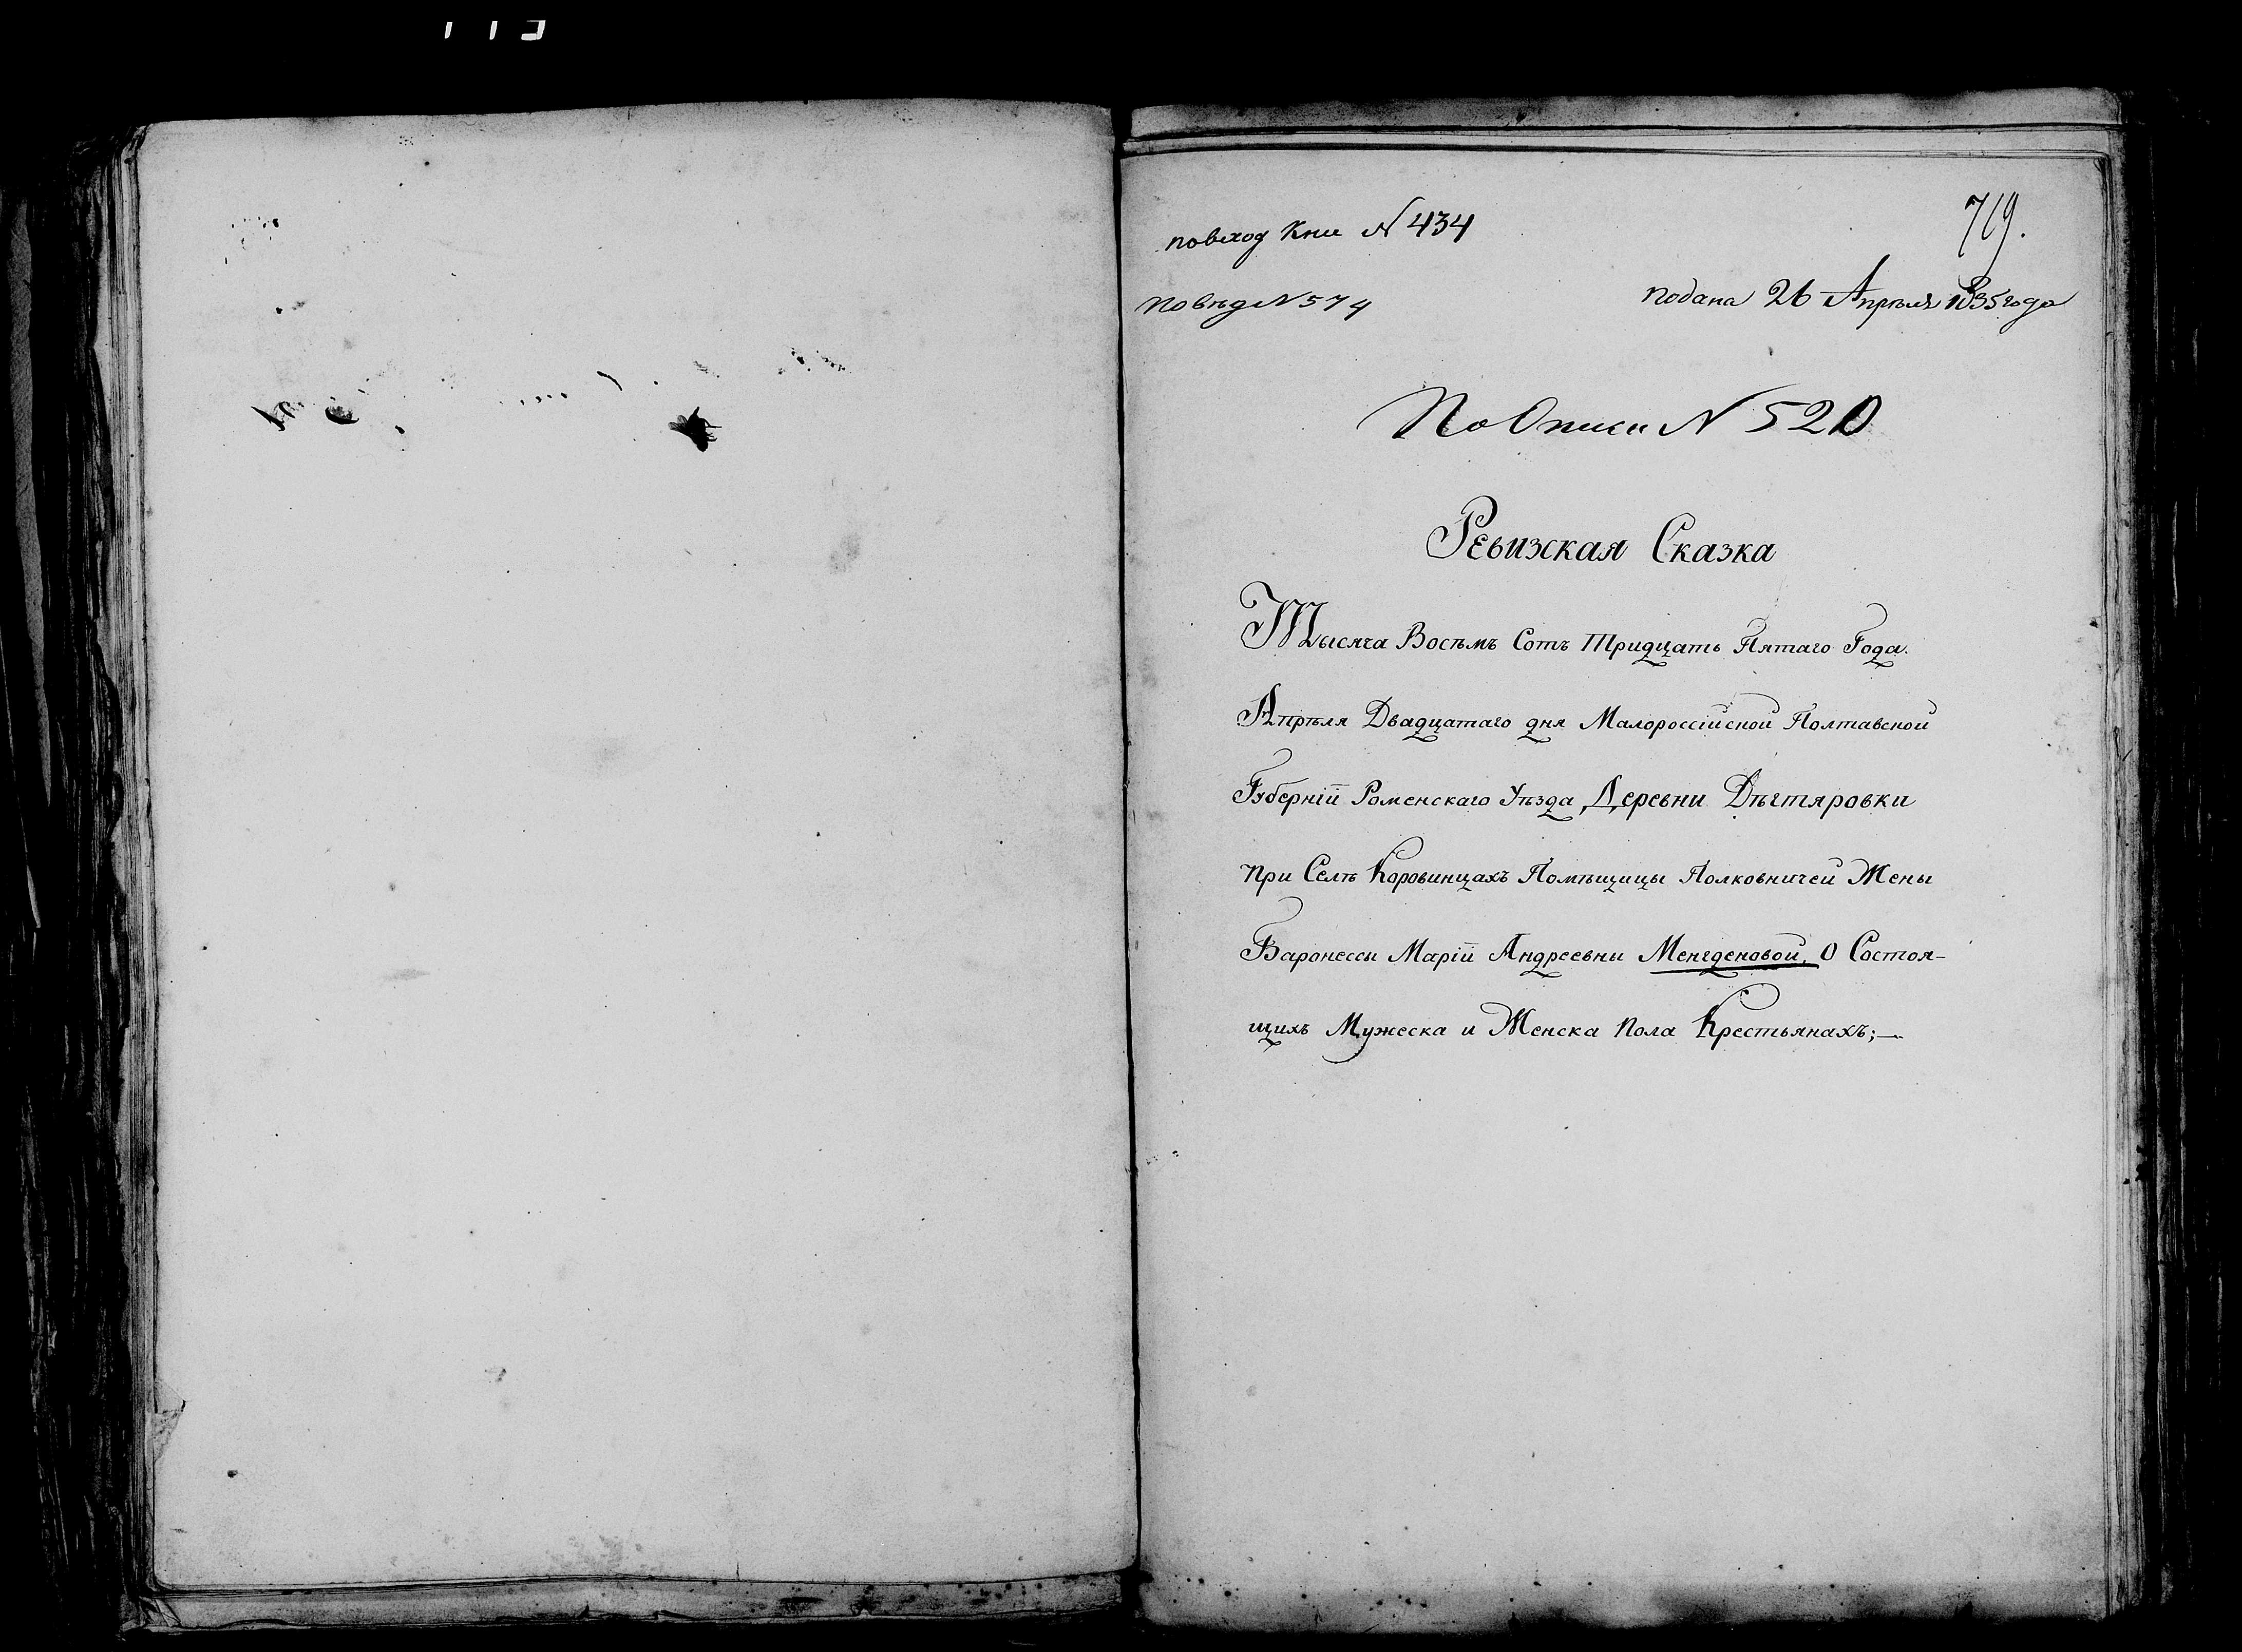 719.
повход Кни N 434
повѣд N 574
подана 26 Апреля 1835 года
По Описи N 520
Ревизская Сказка
Тысяча Восемъ Сотъ Тридцать Пятаго Года.
Апрѣля Двадцатаго дня Малороссійской Полтавской
Губерніи Роменскаго Уѣзда Деревни Дѣгтяровки
при Селѣ Коровинцахъ Помѣщицы Полковничей Жены
Баронессы Маріи Андреевны Менгденовой, О Состоя-
щихъ Мужеска и Женска пола Крестьянахъ;—